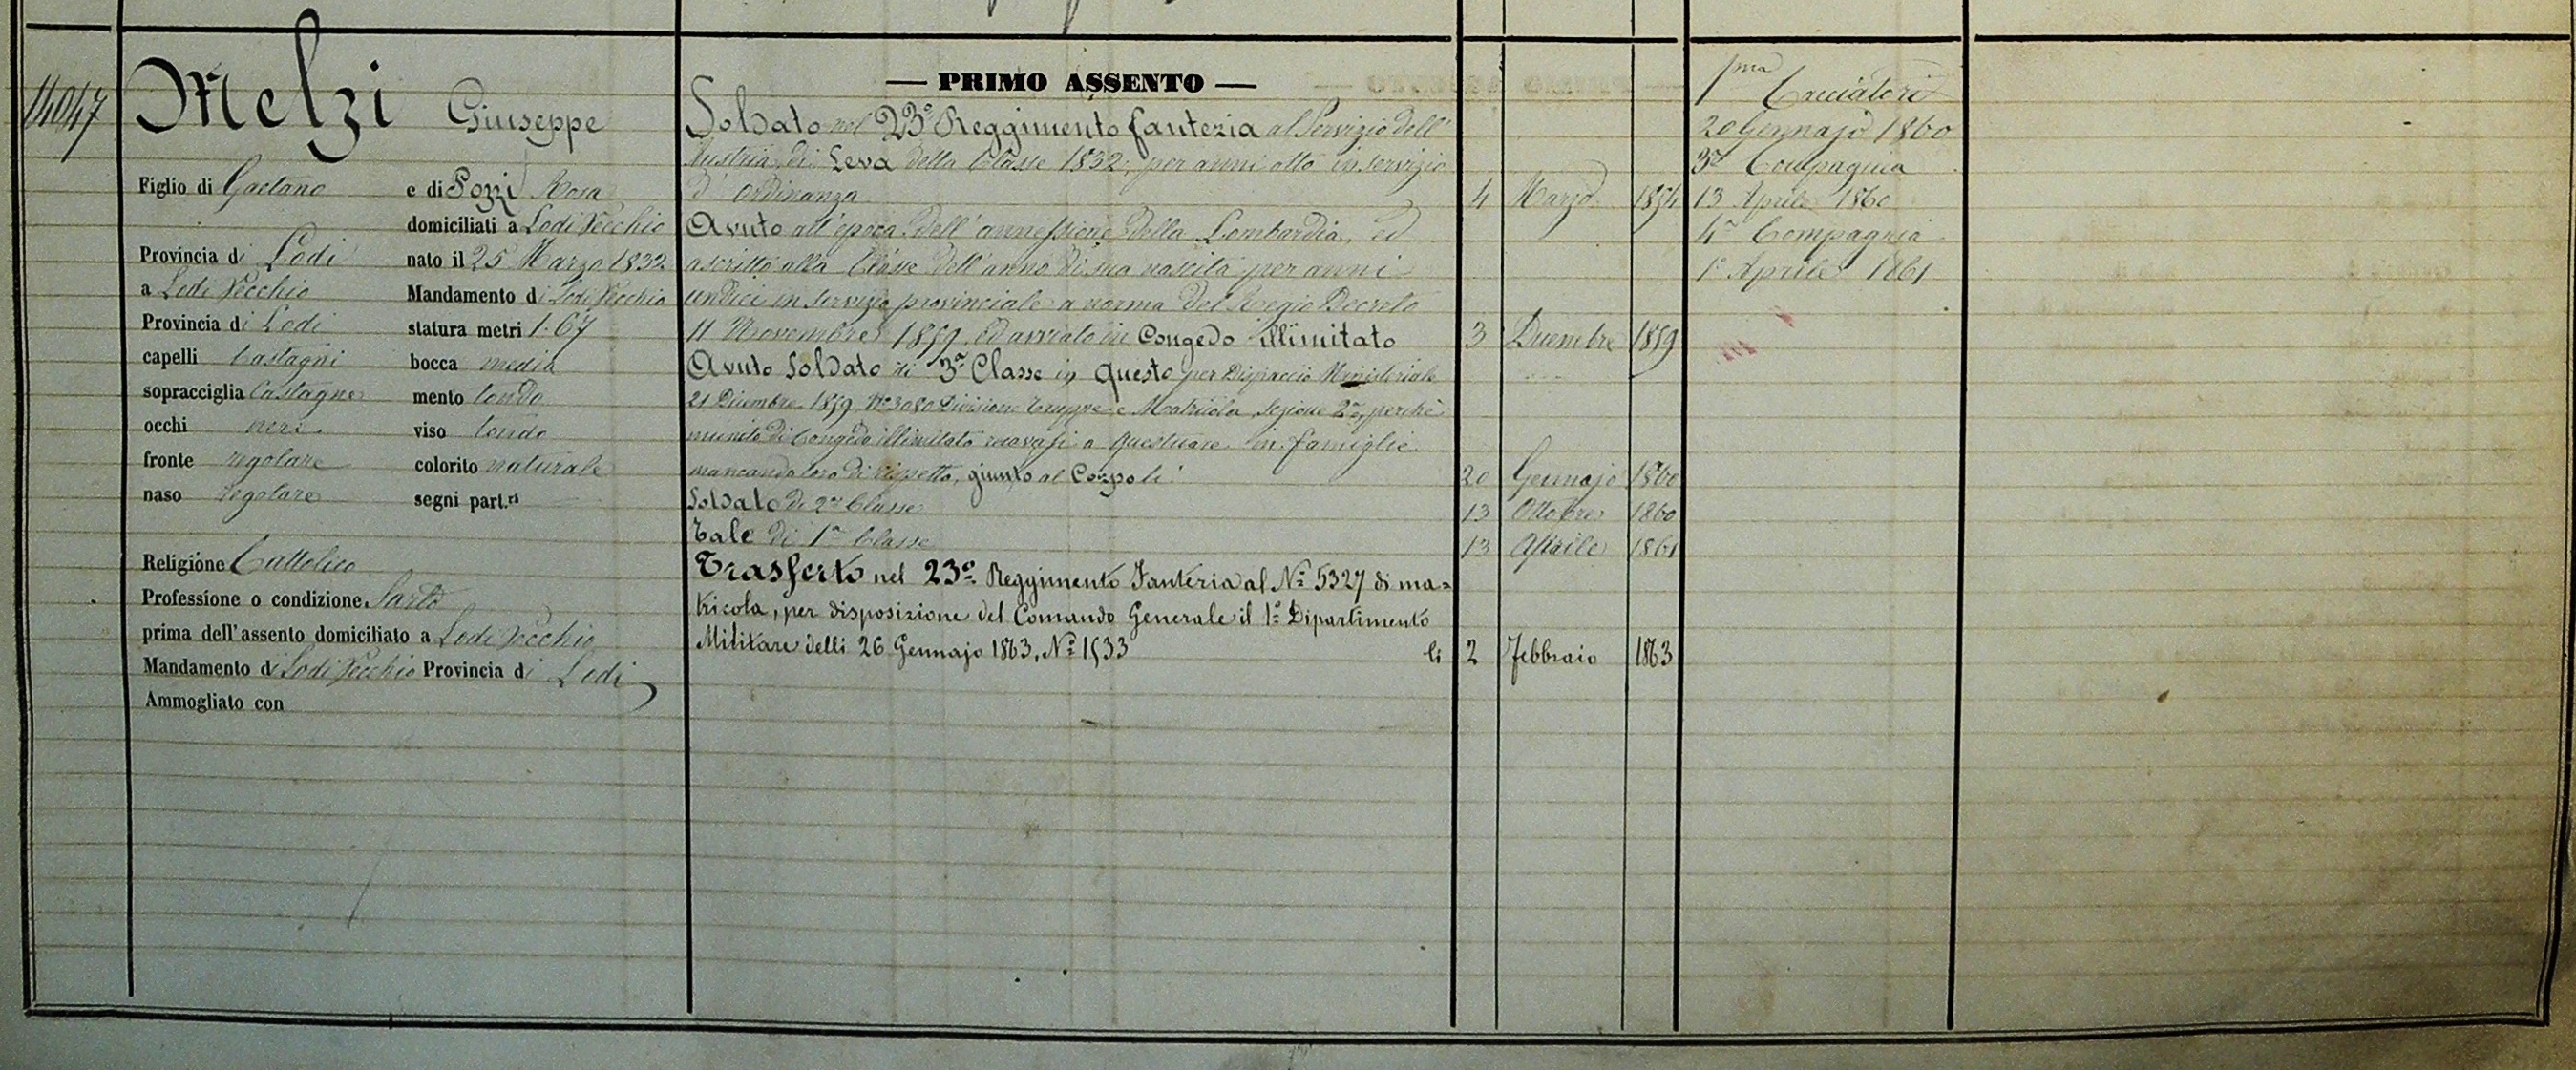 14047
Melzi Giuseppe
Figlio di Gaetano e di Pozzi Rosa
domiciliati a Lodi Vecchio
Provincia di Lodi nato il 25 Marzo 1832
a Lodi Vecchio Mandamento di Lodi Vecchio
Provincia di Lodi statura metri 1.67
capelli Castagni bocca media
sopracciglia Castagne mento tondo
occhi neri viso tondo
fronte regolare colorito naturale
naso regolare segni part.ri
Religione Cattolico
Professione o condizione Sarto
prima dell'assento domiciliato a Lodi Vecchio
Mandamento di Lodi Vecchio Provincia di Lodi
Ammogliato con
— PRIMO ASSENTO —
Soldato nel 23° Reggimento fanteria al Servizio dell'
Austria di Leva della Classe 1832, per anni otto in servizio
d'ordinanza 4 Marzo 1854
Avuto all'epoca dell'annessione della Lombardia, ed
ascritto alla Classe dell'anno di sua nascita per anni
undici in servizio provinciale a norma del Regio Decreto
11 Novembre 1859, ed avviato in Congedo illimitato 3 Dicembre 1859
Avuto Soldato di 3a Classe in questo per Dispaccio Ministeriale
21 Dicembre 1859 No 3080 Divisione Truppe e Matricola Sezione 2a, perchè
munito di Congedo illimitato recavasi a questuare in famiglie
mancando loro di rispetto, giunto al Corpo li 20 Gennajo 1860
Soldato di 2a Classe 13 Ottobre 1860
Tale di 1a Classe 13 Aprile 1861
Trasferto nel 23o Reggimento Fanteria al No 5327 di ma=
tricola, per disposizione del Comando Generale il 1o Dipartimento
Militare delli 26 Gennajo 1863, No 1533 li 2 Febbraio 1863
1ma Cacciatori
20 Gennajo 1860
3a Compagnia
13 Aprile 1860
4a Compagnia
1o Aprile 1861